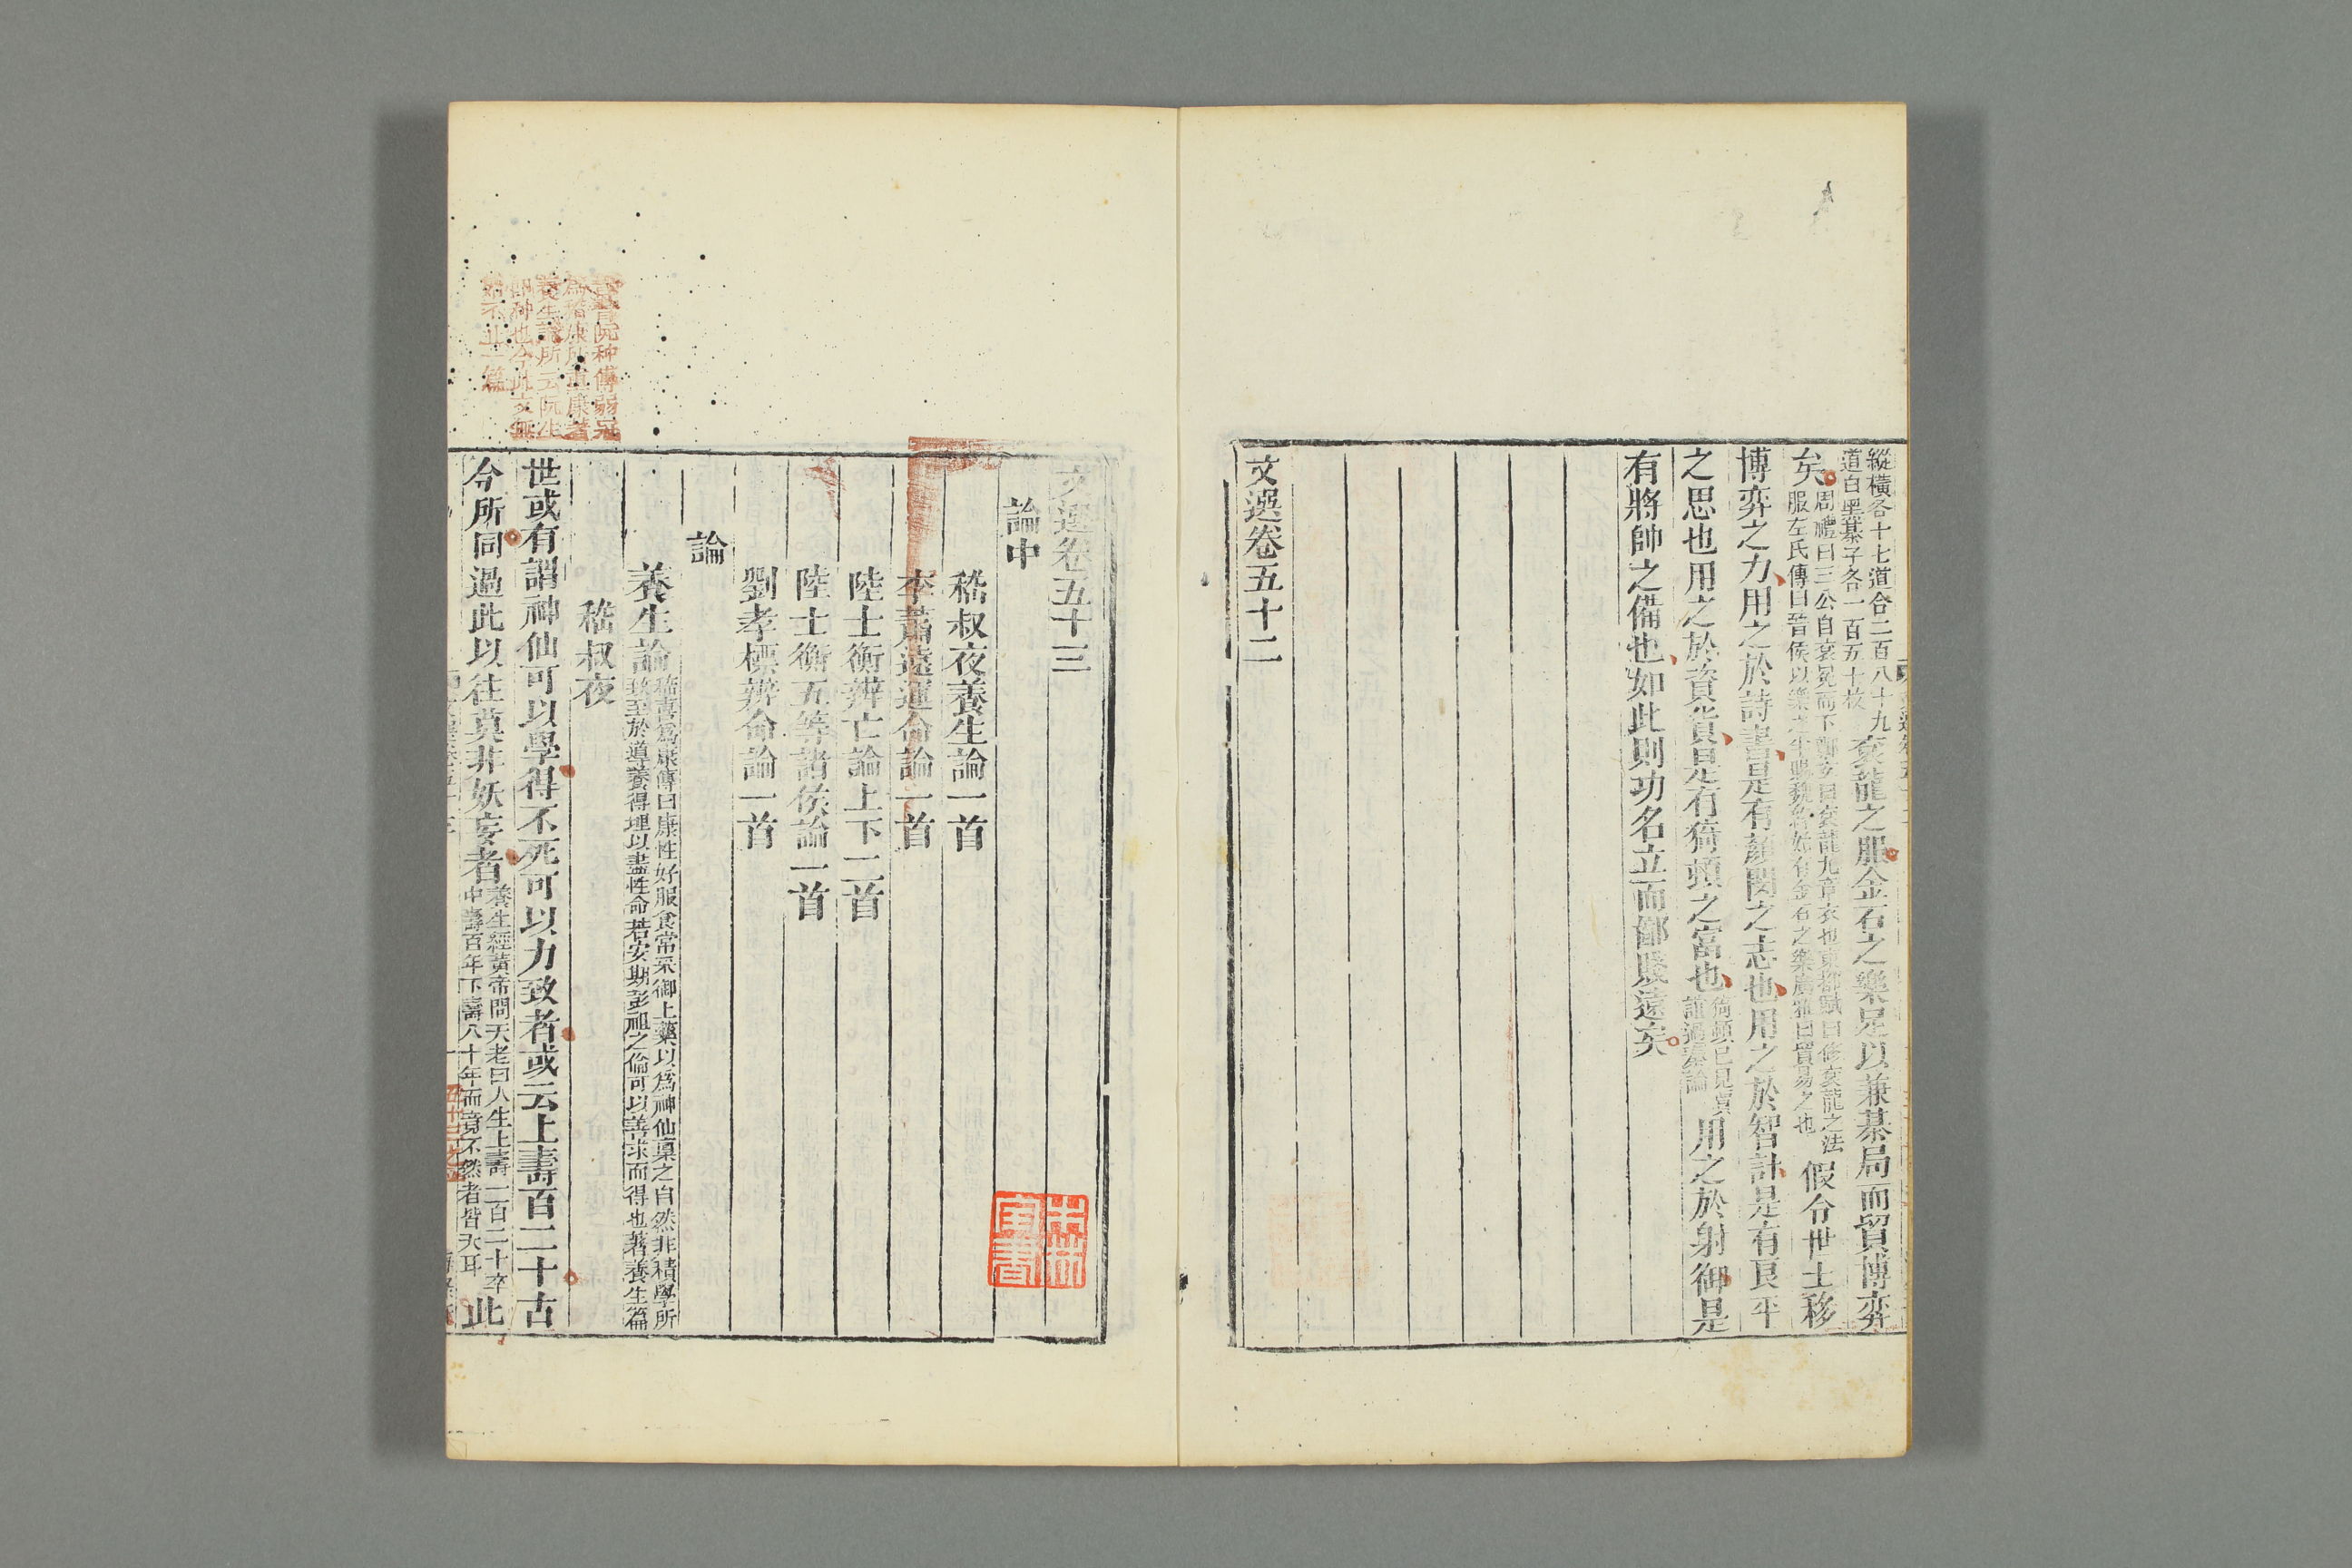 縱橫各十七道合二百八十九
道白黑棊子各一百五十枚
袞龍之服金石之樂足以兼棊局而貿博弈
矣
周禮曰三公自袞冕而下鄭玄曰袞龍九章衣也東都賦曰修袞龍之法
服左氏傳曰晉侯以樂之半賜魏絳始有金石之樂廣雅曰貿易之也
假令世士移
博弈之力用之於詩書是有顏閔之志也用之於智計是有良平
之思也用之於資貨是有猗頓之富也
猗頓已見賈
誼過秦論
用之於射御是
有將帥之備也如此則功名立而鄙賤遠矣
文選卷五十二
文選卷五十三
論中
嵇叔夜養生論一首
李蕭遠運命論一首
陸士衡辨亡論上下二首
陸士衡五等諸侯論一首
劉孝標辨命論一首
論
養生論
嵇喜爲康傳曰康性好服食常采御上藥以爲神仙稟之自然非積學所
致至於導養得理以盡性命若安期彭祖之倫可以善求而得也著養生篇
嵇叔夜
世或有謂神仙可以學得不死可以力致者或云上壽百二十古
今所同過此以往莫非妖妄者
養生經黃帝問天老曰人生上壽一百二十年
中壽百年下壽八十年而竟不然者皆夭耳
此